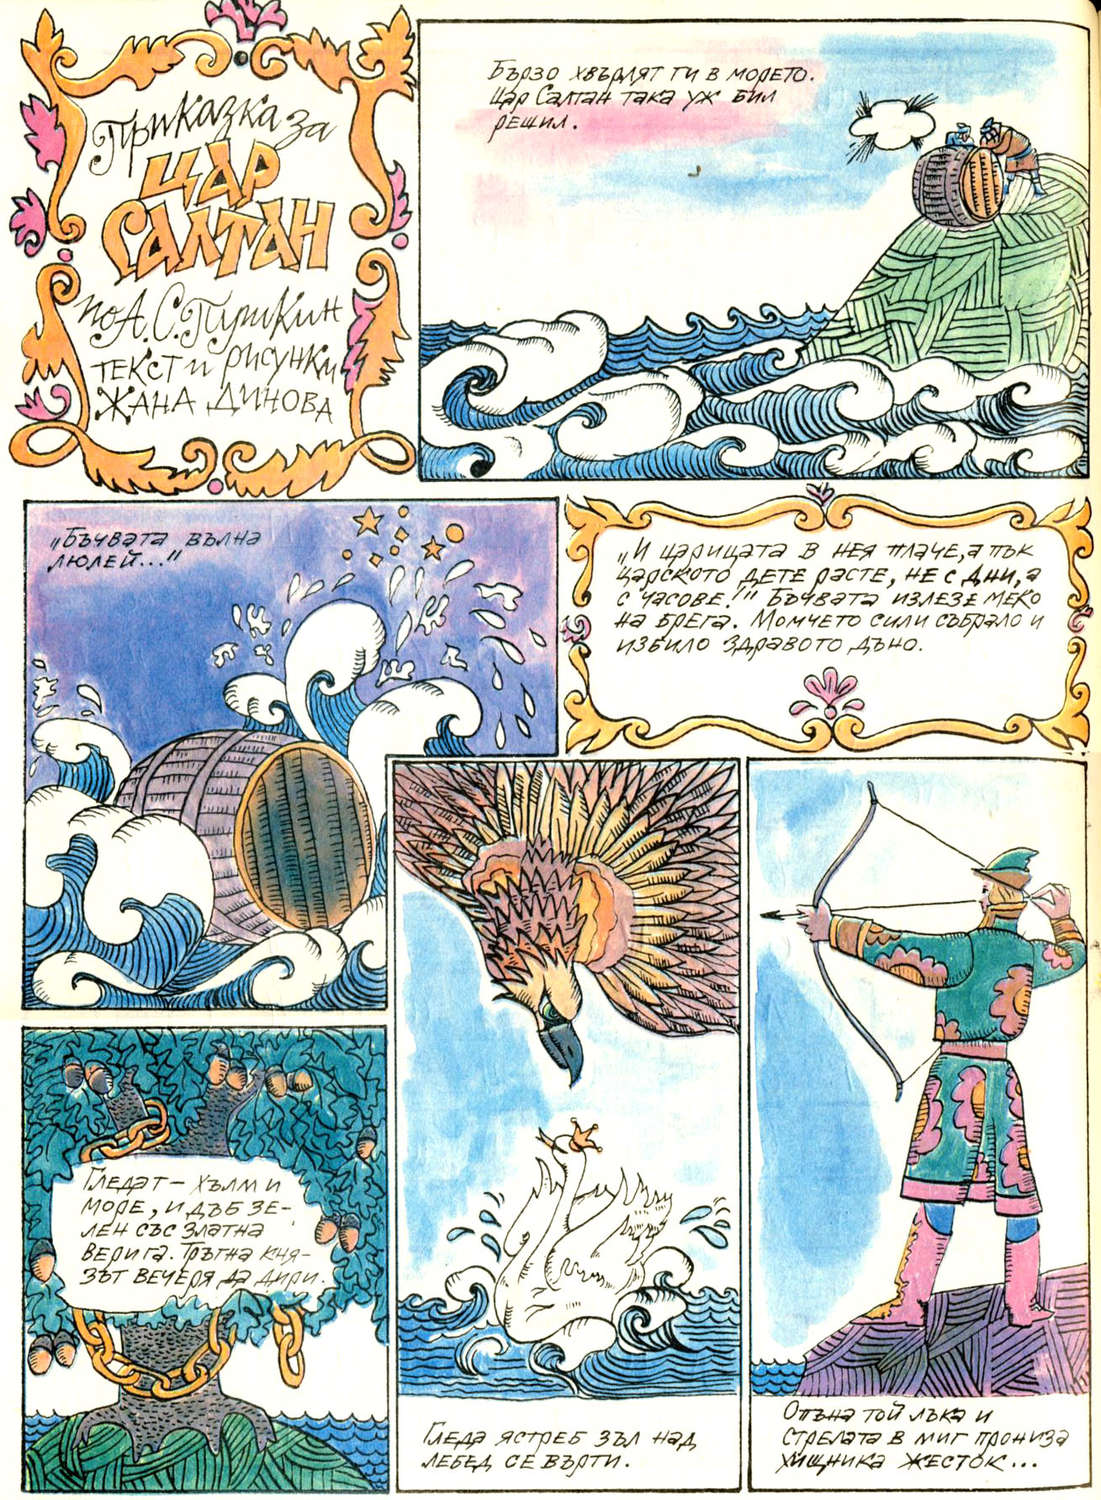 Приказка за
ЦАР
САЛТАН
по А. С. Пушкин
ТЕКСТ и РИСУНКИ
ЖАНА ДИНОВА
Бързо хвърлят ги в морето.
Цар Салтан така уж бил
решил.
„Бъчвата вълна
люлей..."
„И царицата в нея плаче, а пък
царското дете расте, не с дни, а
с часове!" Бъчвата излезе меко
на брега. Момчето сили събрало и
избило здравото дъно.
Гледат – хълм и
море, и дъб зе-
лен със златна
верига. Тръгна кня-
зът вечеря да дири.
Гледа ястреб зъл над
лебед се върти.
Опъна той лъка и
стрелата в миг прониза
хищника жесток...